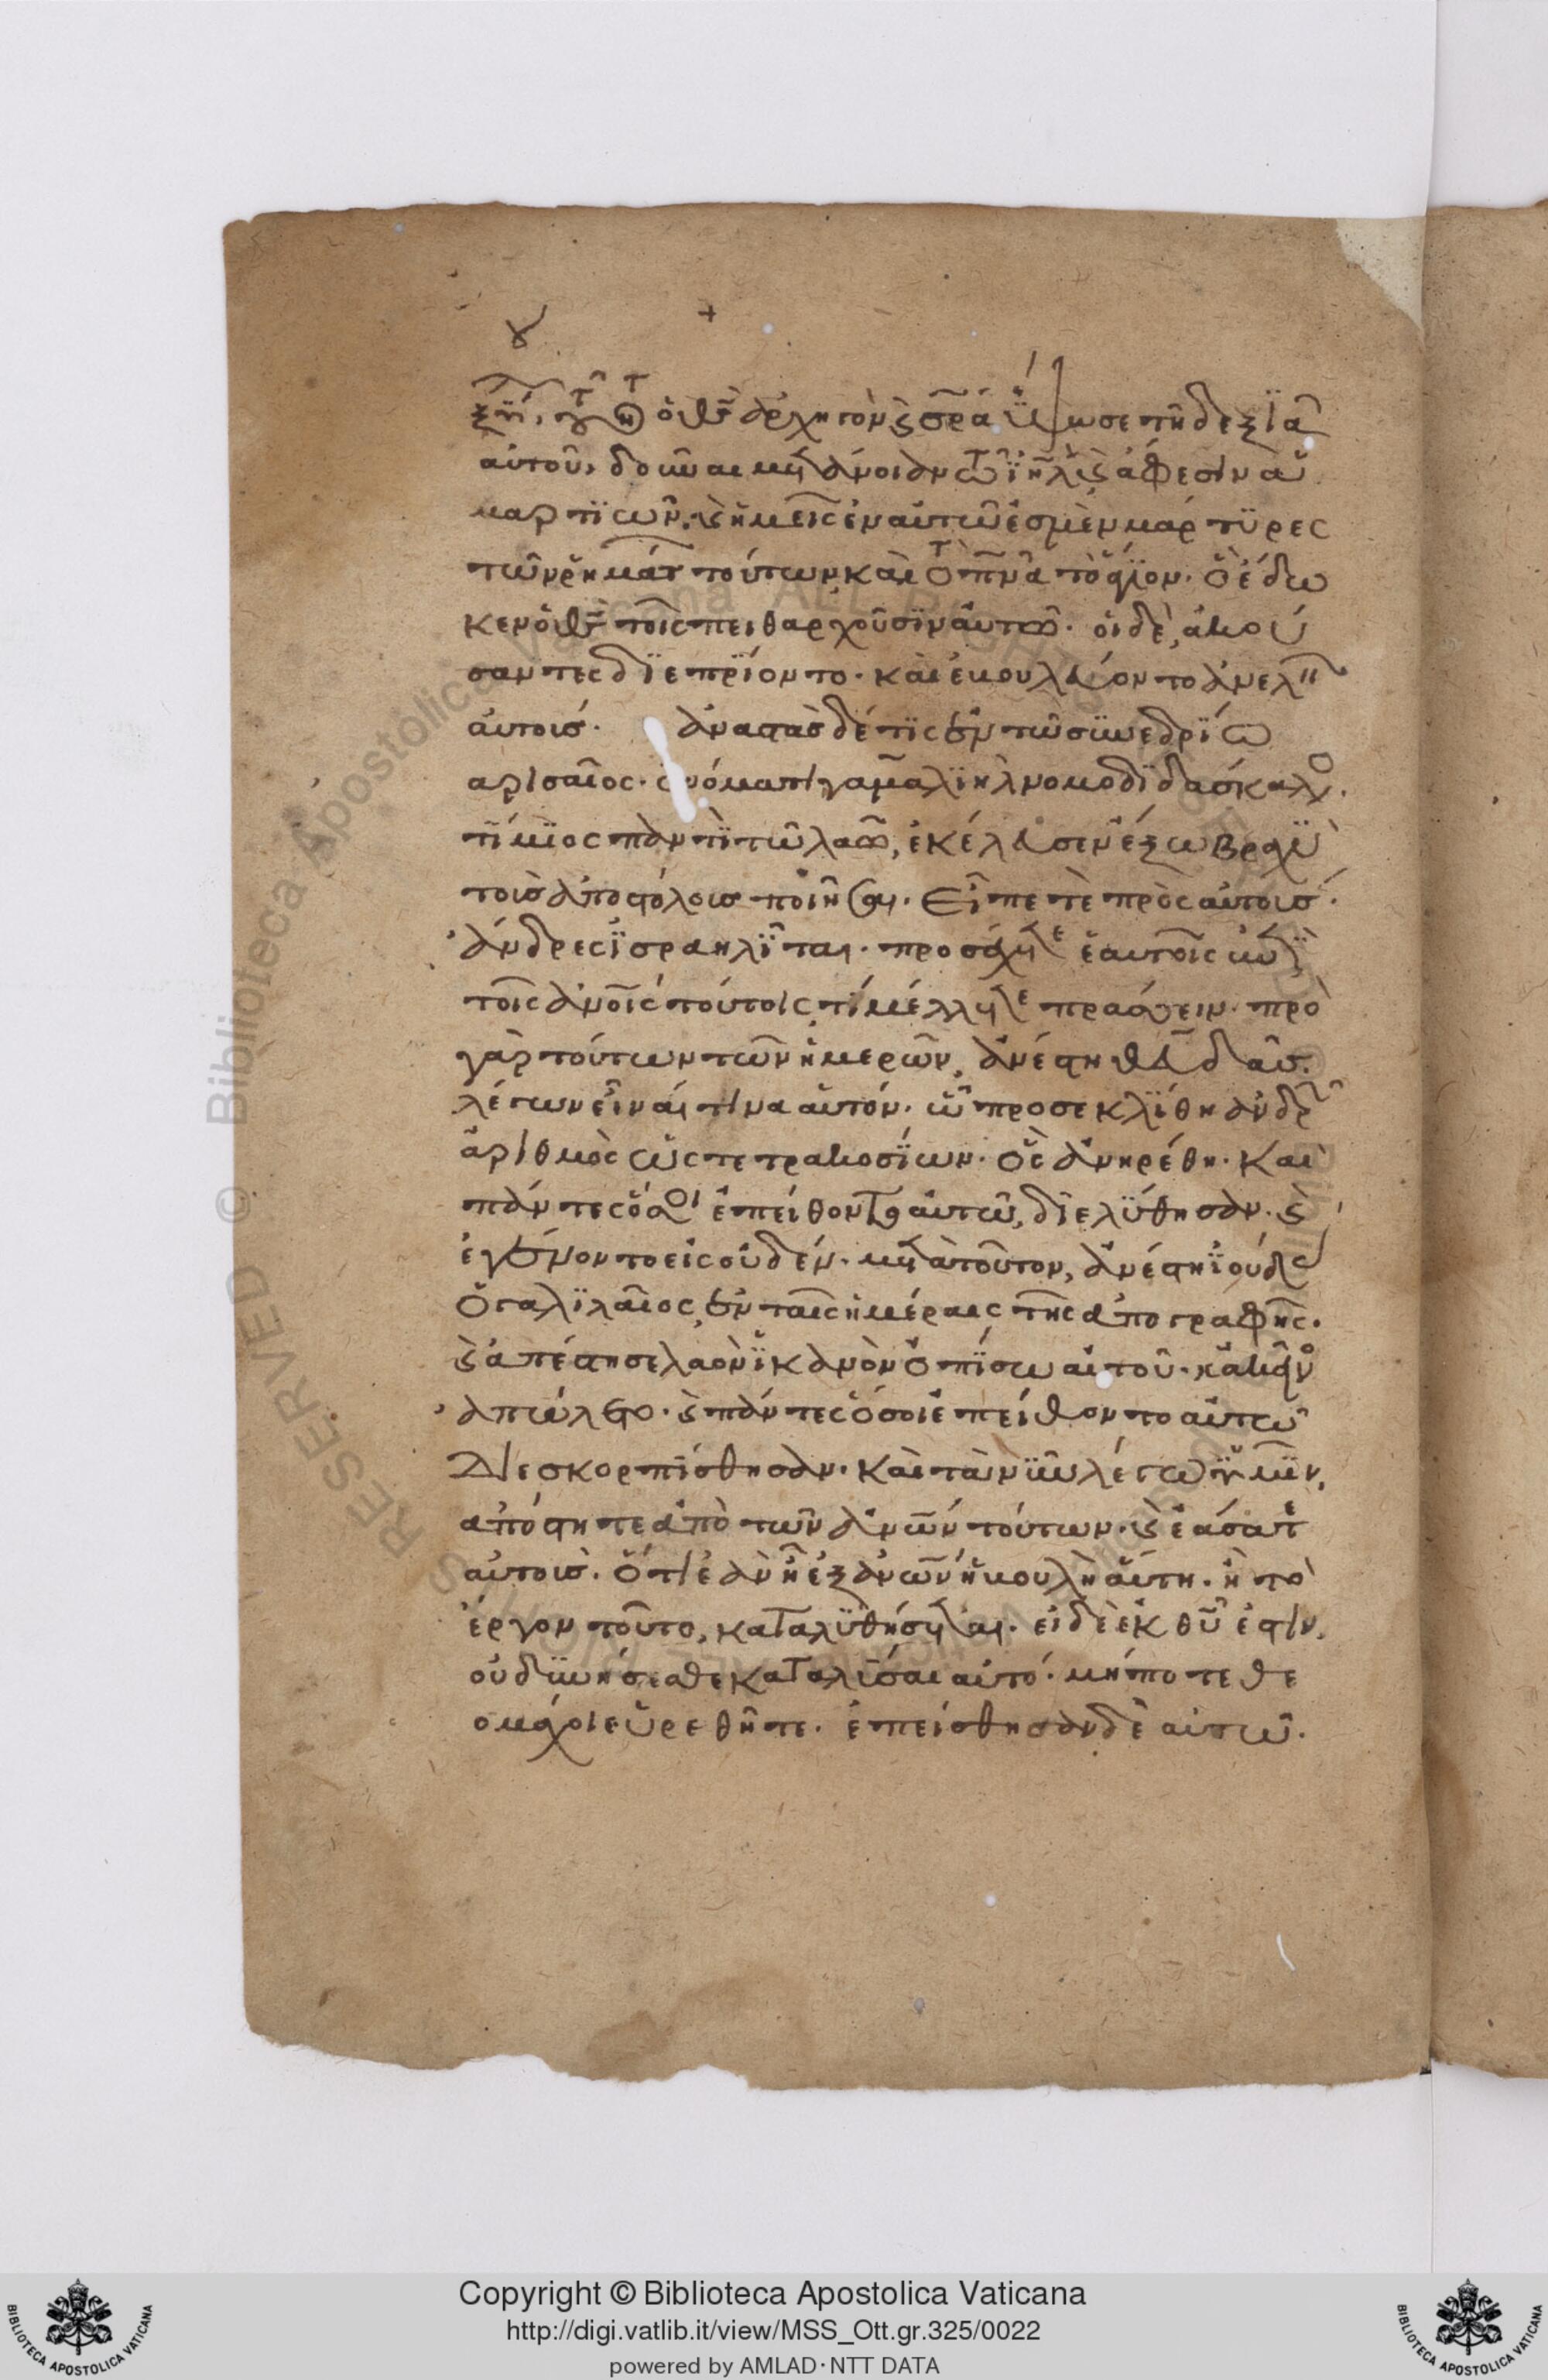 αὐτοῦ, δοῦναι μετάνοιαν τῶ ἰηλ καὶ ἄφεσιν ἁ
μαρτϊῶν. καὶ ἡμεῖς ἐν αὐτῶ ἐσμὲν μάρτϋρες
τῶν ῥημάτ τούτων, καὶ τὸ πνα τὸ ἅγϊον. ὃ ἔδω
κεν ὁ θς τοῖς πειθαρχοῦσϊν αὐτῶ. οἱ δὲ, ἀκού
σαντες δϊεπρίοντο. καὶ ἐβουλεύοντο ἀνελεῖν
αὐτούς. ἀναστὰς δέ τϊς ἐν τῶ συνεδρίω
αρισαῖος. ὀνόματι γαμαλϊὴλ νομοδϊδάσκαλο.
τίμϊος παντὶ τῶ λαῶ, ἐκέλευσεν ἔξω βραχϋ
τοὺς ἀποστόλους ποιῆσαι. εἶπε τὲ πρὸς αὐτούς.
ἄνδρες ϊσραηλῖται. προσέχετε ἑαυτοῖς ἐπὶ
τοῖς ἀνοις τούτοις, τί μέλλετε πράσσειν. πρὸ
γὰρ τούτων τῶν ἡμερῶν, ἀνέστη θευδᾶσ.
λέγων εἶναί τινα αὑτόν. ὧ προσεκλίθη ἀνδρ
ἀριθμὸς ὡς τετρακοσίων. ὃς ἀνηρέθη. καὶ
πάντες ὅσοι ἐπείθοντο αὐτῶ, διελύθησαν. καὶ
ἐγένοντο εἰς οὐδέν. μετὰ τοῦτον, ἀνέστη ϊούδας
ὁ γαλϊλαῖος, ἐν ταῖς ἡμέραις τῆς ἀπογραφῆς.
καὶ ἀπέστησε λαὸν ϊκανὸν ὀπίσω αὐτοῦ. κἀκεῖνος
ἀπώλετο. καὶ πάντες ὅσοι ἐπείθοντο αὐτῶ
διεσκορπίσθησαν. καὶ τὰ νῦν λέγω ὑμῖν,
ἀπόστητε ἀπὸ τῶν ἀνων τούτων. καὶ ἐάσατε
αὐτούς. ὅτι ἐὰν ἦ ἐξ ἀνων ἡ βουλὴ αὕτη. ἢ τὸ
ἔργον τοῦτο, καταλϋθήσεται. εἰ δὲ ἐκ θυ ἐστιν,
οὐ δϋνήσεσθε καταλῦσαι αὐτό. μήποτε θε
ομάχοι εὑρεθῆτε. ἐπείσθησαν δὲ αὐτῶ.
Copyright © Biblioteca Apostolica Vaticana
http://digi.vatlib.it/view/MSS_Ott.gr.325/0022
powered by AMLAD·NTT DATA